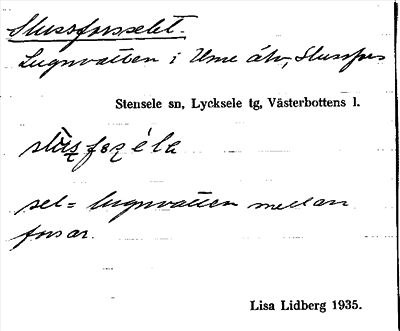 Slussforsselet.
Lugnvatten i Ume älv, Slussfors
Stensele sn, Lycksele tg, Västerbottens l.
sel = lugnvatten mellan
forsar.
Lisa Lidberg 1935.